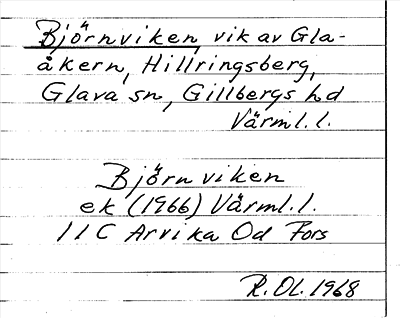 Björnviken, vik av Gla-
åkern, Hillringsberg,
Glava sn, Gillbergs hd
Värml.l.
Björnviken
ek (1966) Värml.l.
11C Arvika Od Fors
R.Ol.1968